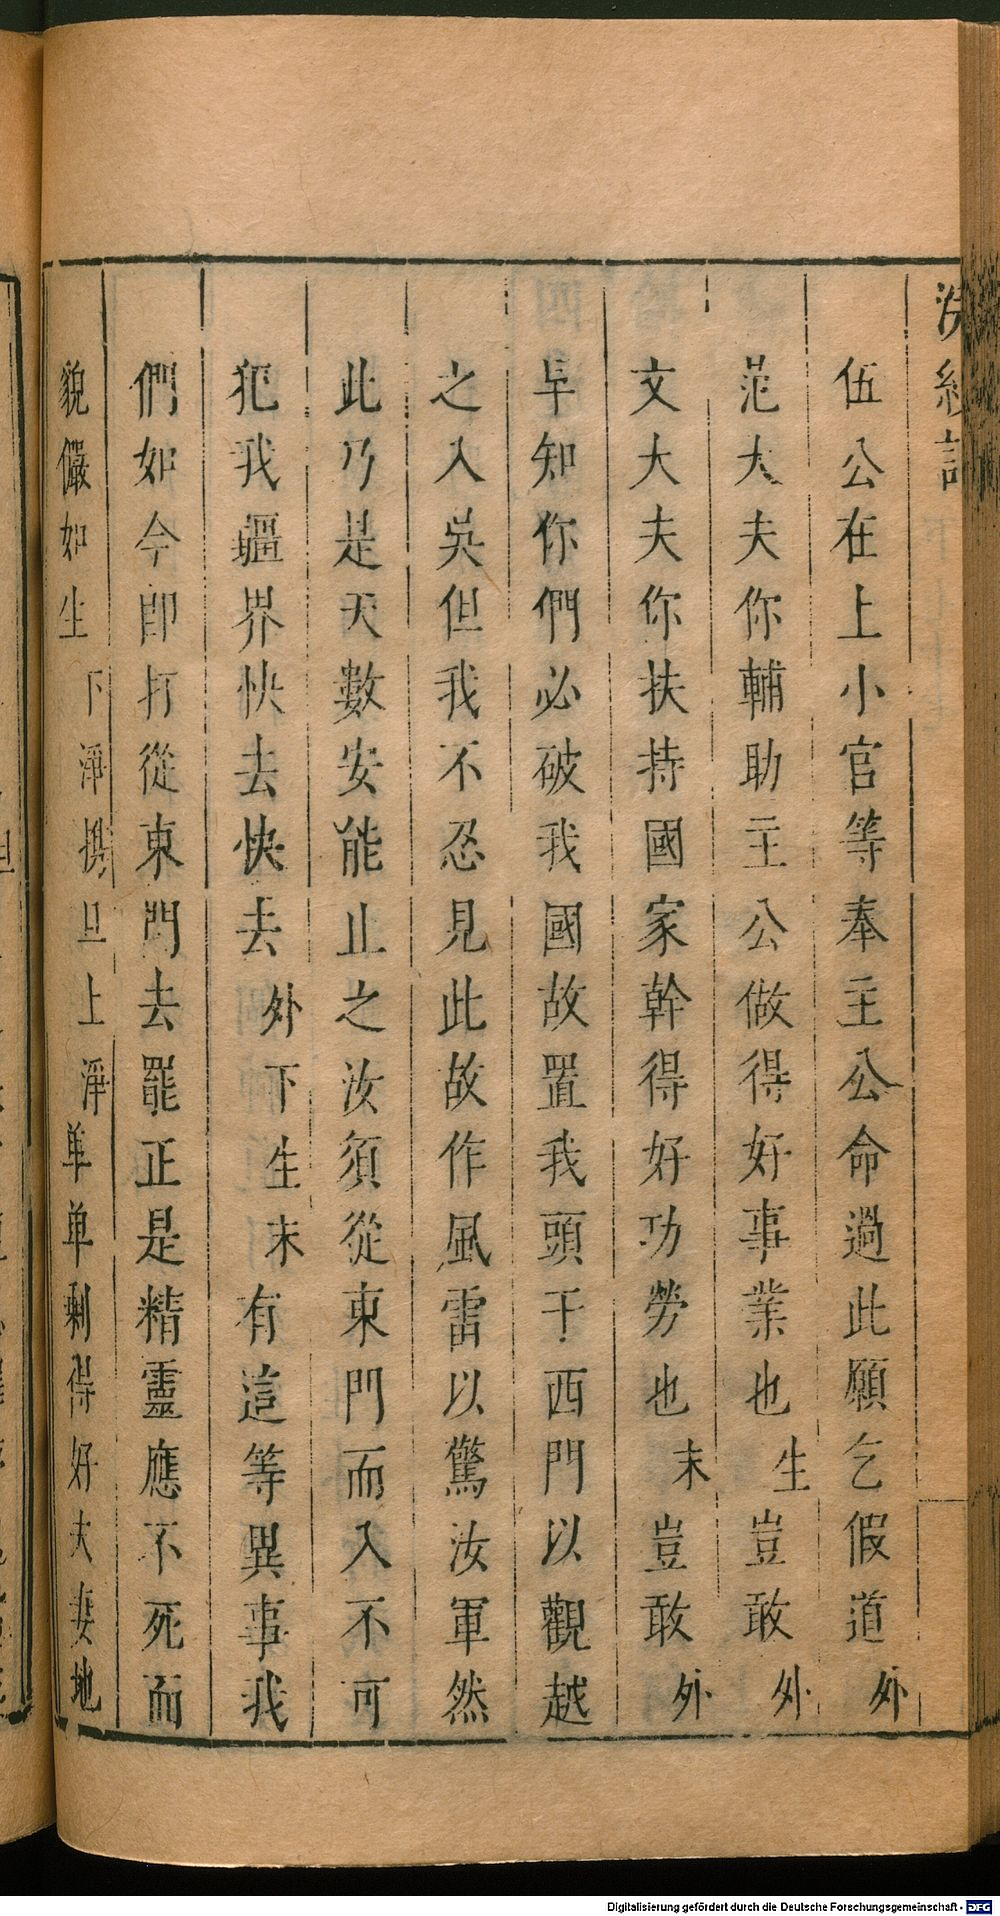 浣紗記
伍公在上小官等奉主公命過此願乞假道外
范大夫你輔助主公做得好事業也生豈敢外
文大夫你扶持國家幹得好功勞也末豈敢外
早知你們必破我國故置我頭于西門以觀越
之入吳但我不忍見此故作風雷以驚汝軍然
此乃是天數安能止之汝須從東門而入不可
犯我疆界快去快去外下生末有這等異事我
們如今卽打從東門去罷正是精靈應不死而
貌儼如生下淨携旦上淨单单剩得好夫妻地
Digitalisierung gefördert durch die Deutsche Forschungsgemeinschaft - DFG